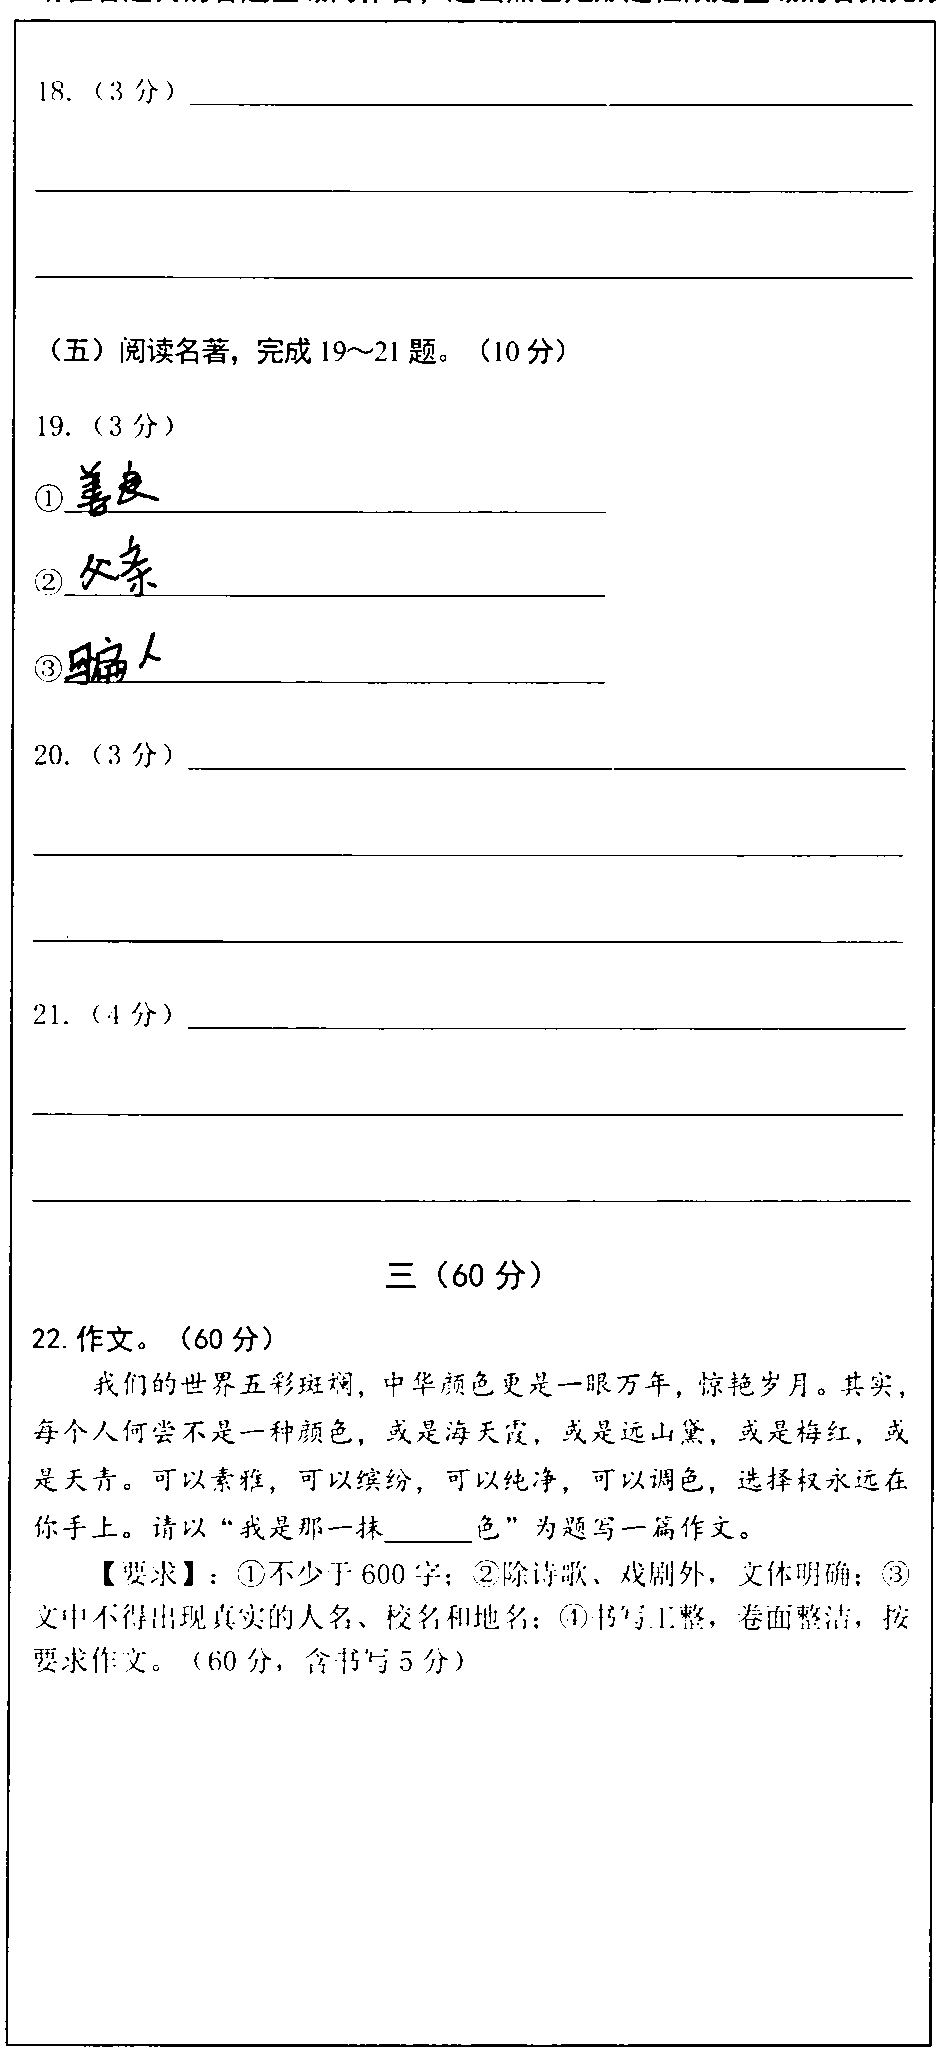 18.（3 分）
（五）阅读名著，完成 19～21 题。（10 分）
19.（3 分）
①善良
②父亲
③骗人
20.（3 分）
21.（4 分）
三（60 分）
22. 作文。（60 分）
我们的世界五彩斑斓，中华颜色更是一眼万年，惊艳岁月。其实，
每个人何尝不是一种颜色，或是海天霞，或是远山黛，或是梅红，或
是天青。可以素雅，可以缤纷，可以纯净，可以调色，选择权永远在
你手上。请以“我是那一抹______色”为题写一篇作文。
【要求】：①不少于 600 字；②除诗歌、戏剧外，文体明确；③
文中不得出现真实的人名、校名和地名；④书写工整，卷面整洁，按
要求作文。（60 分，含书写 5 分）